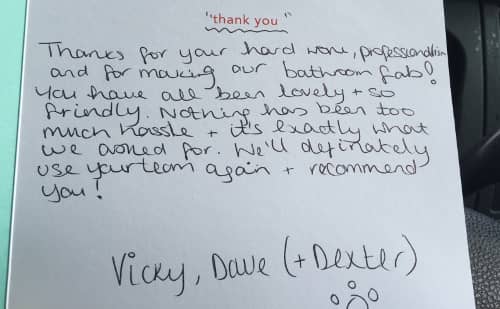 "thank you"
Thanks for your hard work, professionalism
and for making our bathroom fab!
You have all been lovely + so
frindly. Nothing has been too
much hassle + it's exactly what
we asked for. We'll definately
use your team again + recommend
you!
Vicky, Dave (+ Dexter)